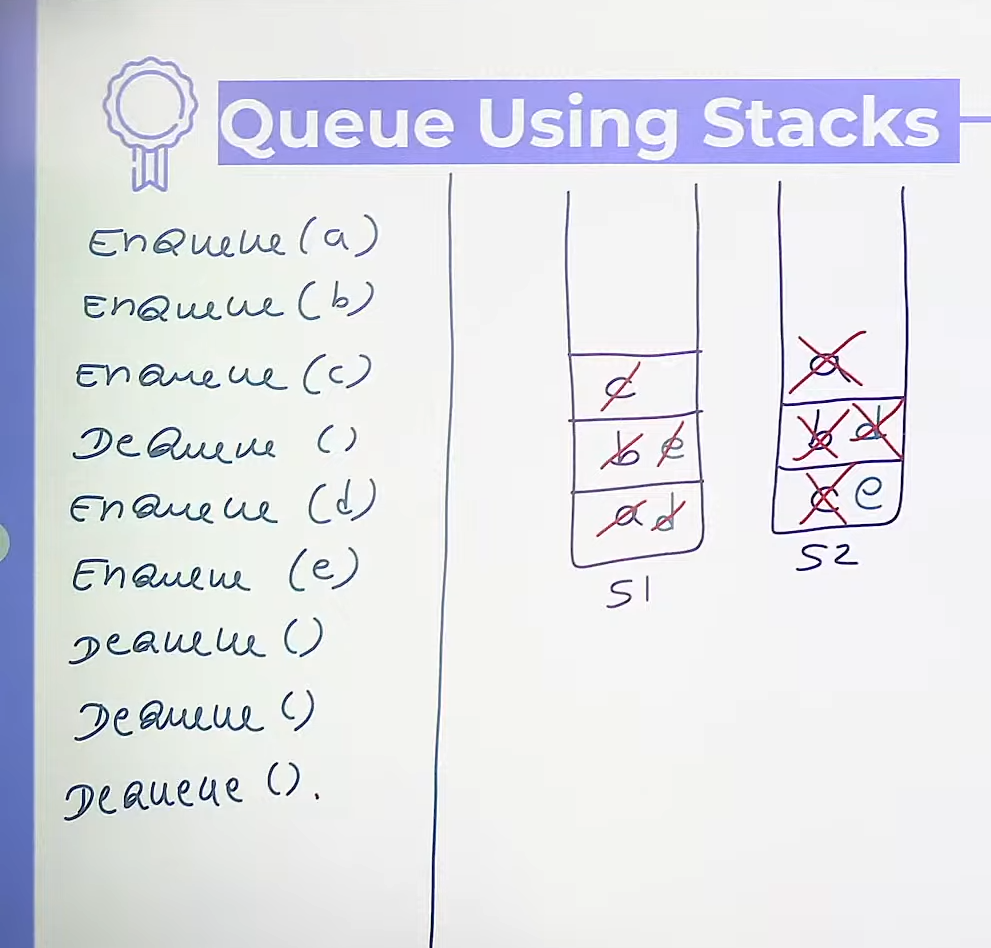 Queue Using Stacks
EnQueue (a)
EnQueue (b)
EnQueue (c)
DeQueue ()
EnQueue (d)
EnQueue (e)
DeQueue ()
DeQueue ()
DeQueue ().
c
b e
a d
S1
a
b d
c e
S2